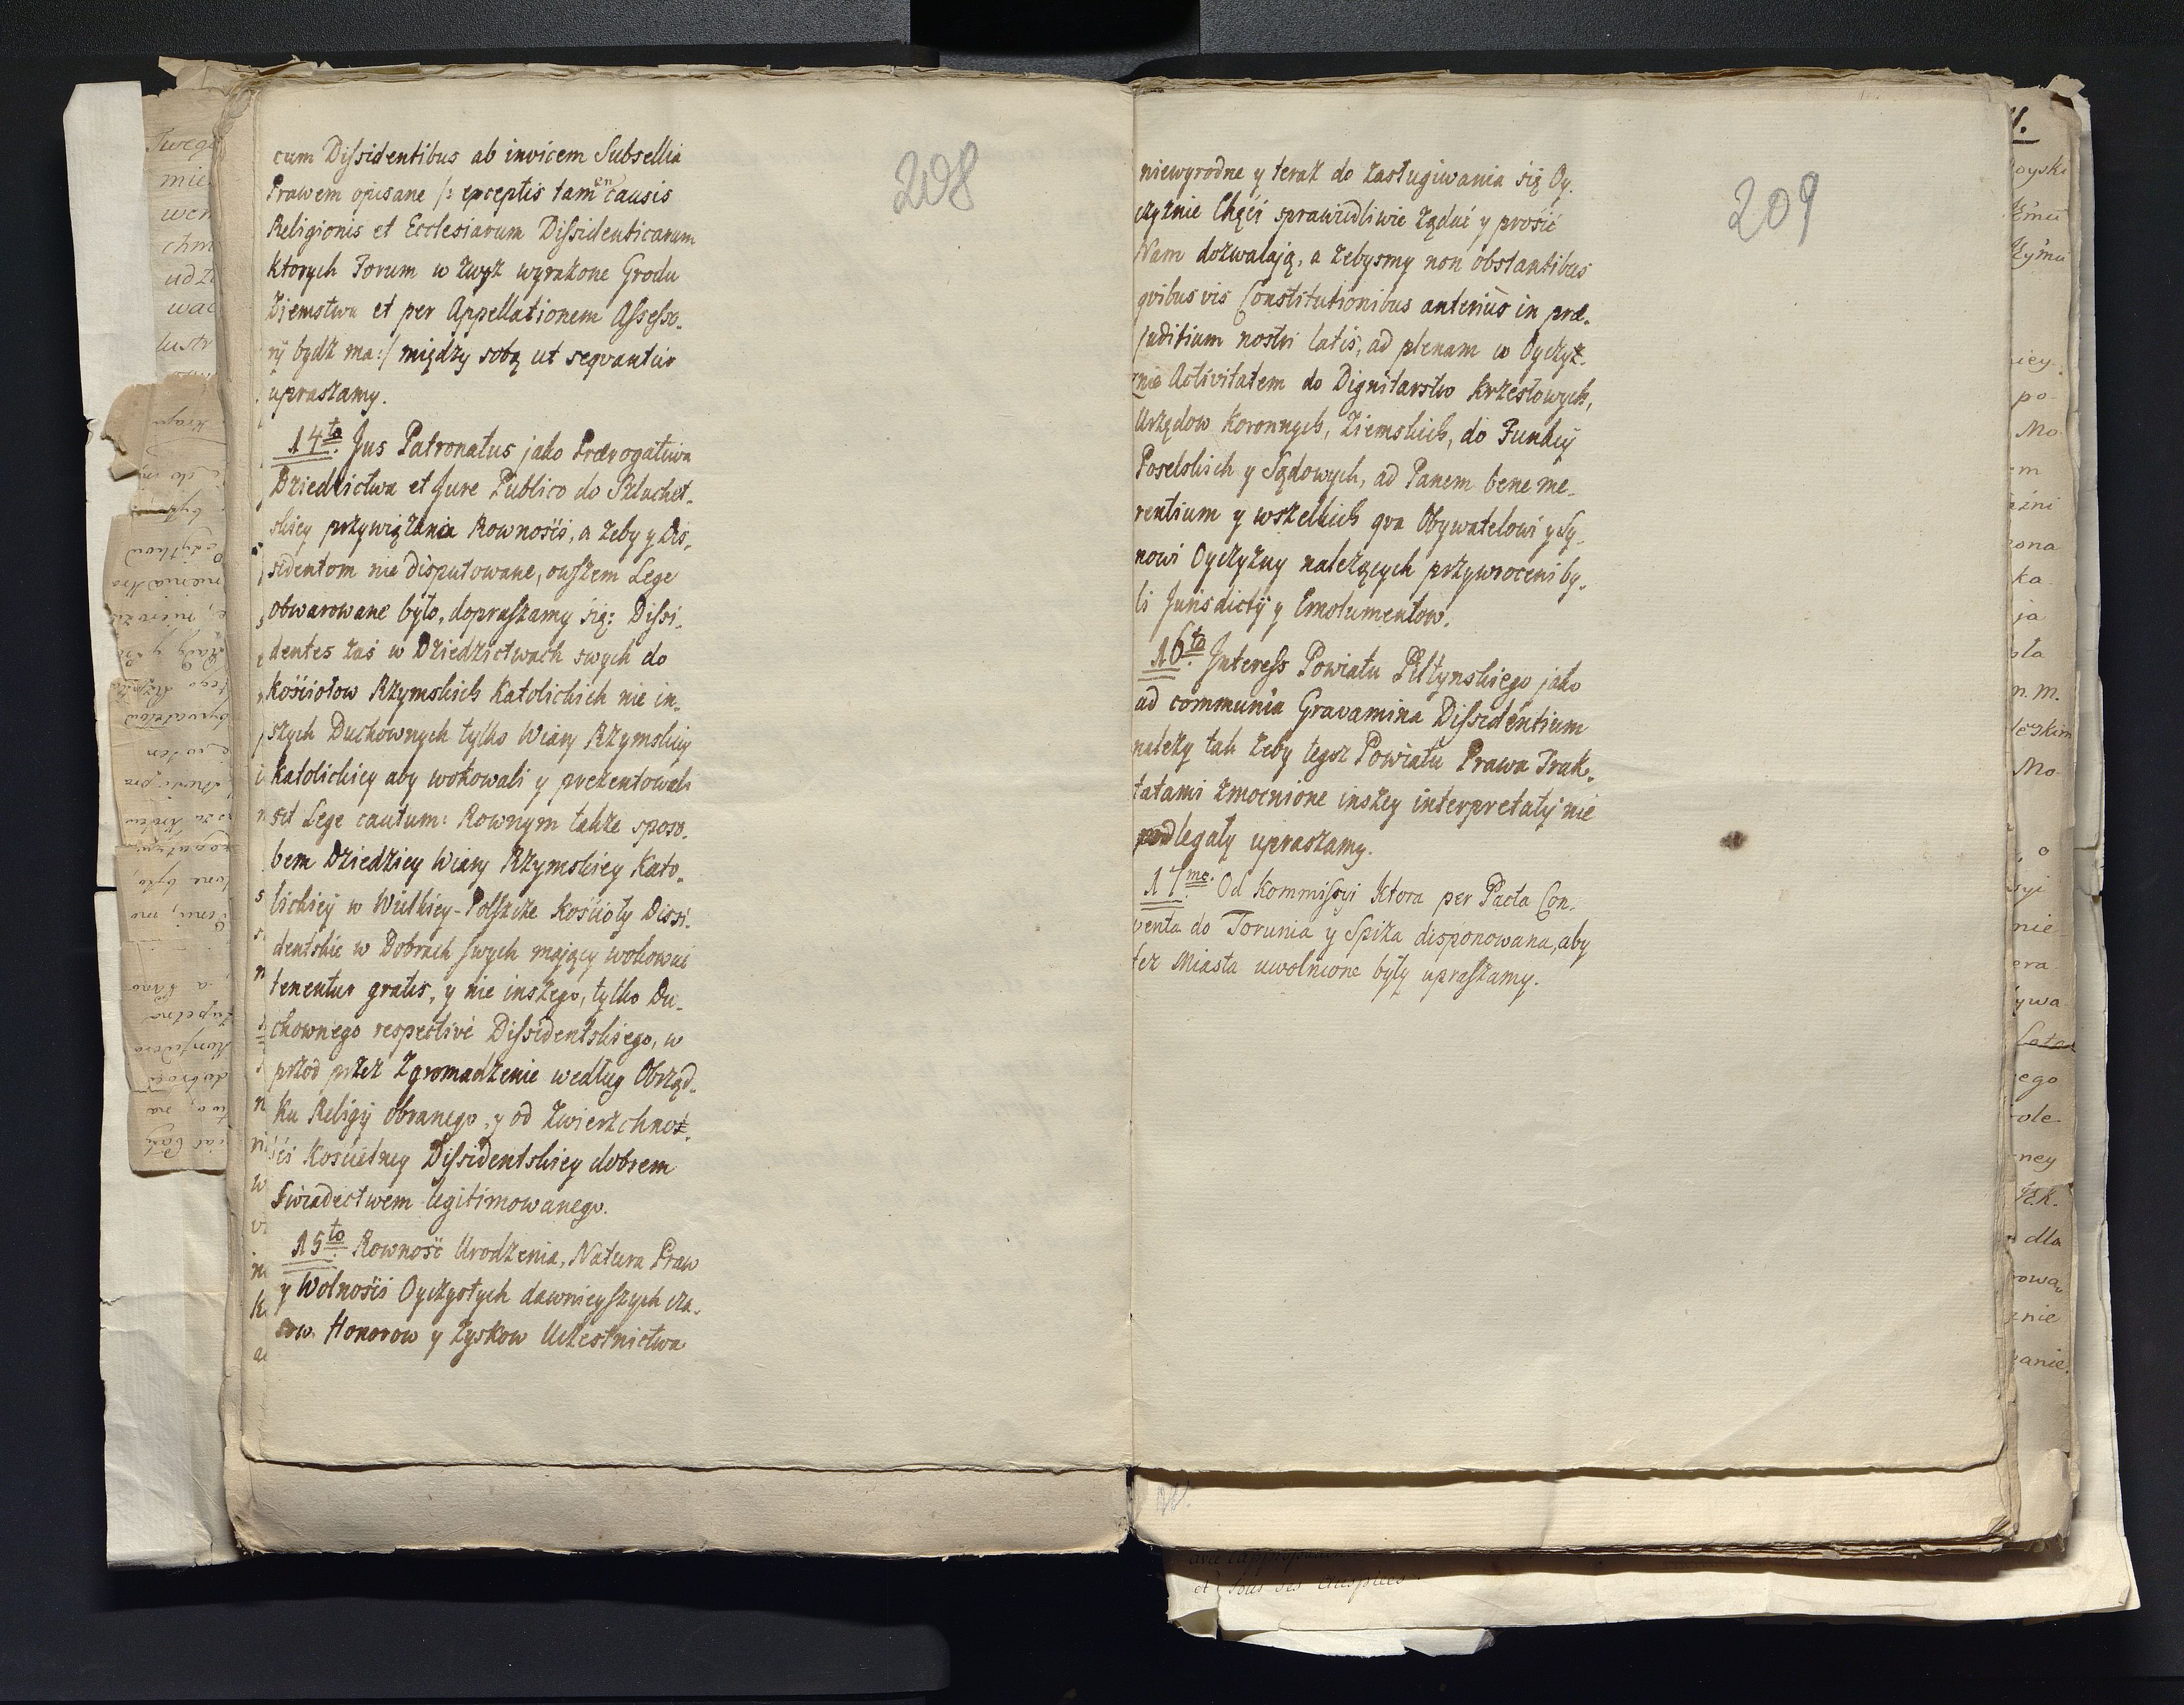 208
cum Dissidentibus ab invicem Subsellia
Prawem opisane /: exceptis tamen causis
Religionis et Ecclesiarum Dissidenticarum
Ktorych Forum w zwyż wyrażone Grodu
Ziemstwa et per Appellationem Assesso-
ryi bydź ma:/ między sobą ut seqvantur
upraszamy.
14to. Jus Patronatus jako Prærogatiwa
Dziedzictwa et Jure Publico do Szlachet-
skiey przywiązania Rowności, a żeby y Dis-
sidentom nie disputowane, owszem Lege
obwarowane było, dopraszamy się: Dissi-
dentes zaś w Dziedzictwach swych do
Kościołow Rzymskich Katolickich nie in-
szych Duchownych tylko Wiary Rzymskiey
Katolickiey aby wokowali y prezentowali
sit Lege cautum: Rownym także sposo-
bem Dziedzicy Wiary Rzymskiey Kato-
lickiey w Wielkiey-Polszcze Kościoły Dissi-
dentskie w Dobrach swych mający wokować
tenentur gratis, y nie inszego, tylko Du-
chownego respectivè Dissidentskiego, w
przod przez Zgromadzenie według Obrząd-
ku Religij obranego, y od Zwierzchnoś-
ści Kościelney Dissidentskiey dobrem
Swiadectwem legitimowanego.
15to. Rowność Urodzenia, Natura Praw
y Wolności Oyczystych dawnieyszych cza-
sow Honorow y Zyskow Uczestnictwa
209
niewyrodne y teraz do zasługiwania się Oy-
czyznie Chęći sprawiedliwie żądać y prośić
Nam dozwalają, a żebysmy non obstantibus
qvibus vis Constitutionibus anterius in præ-
juditium nostri latis, ad plenam w Oyczyz-
nie Activitatem do Dignitarstw Krzesłowych,
Urzędow Koronnych, Ziemskich, do Funkcij
Poselskich y Sądowych, ad Panem bene me-
rentium y wszelkich qva Obywatelowi y Sy-
nowi Oyczyzny należących przywroceni by-
li Jurisdictij y Emolumentow.
16to. Interess Powiatu Piltynskiego jako
ad communia Gravamina Dissidentium
należy tak żeby tegoż Powiatu Prawa Trak-
tatami zmocnione inszey interpretatij nie
podlegały upraszamy.
17me. Od Kommissyi Ktora per Pacta Con-
venta do Torunia y Spiża disponowana, aby
też Miasta uwolnione były upraszamy.